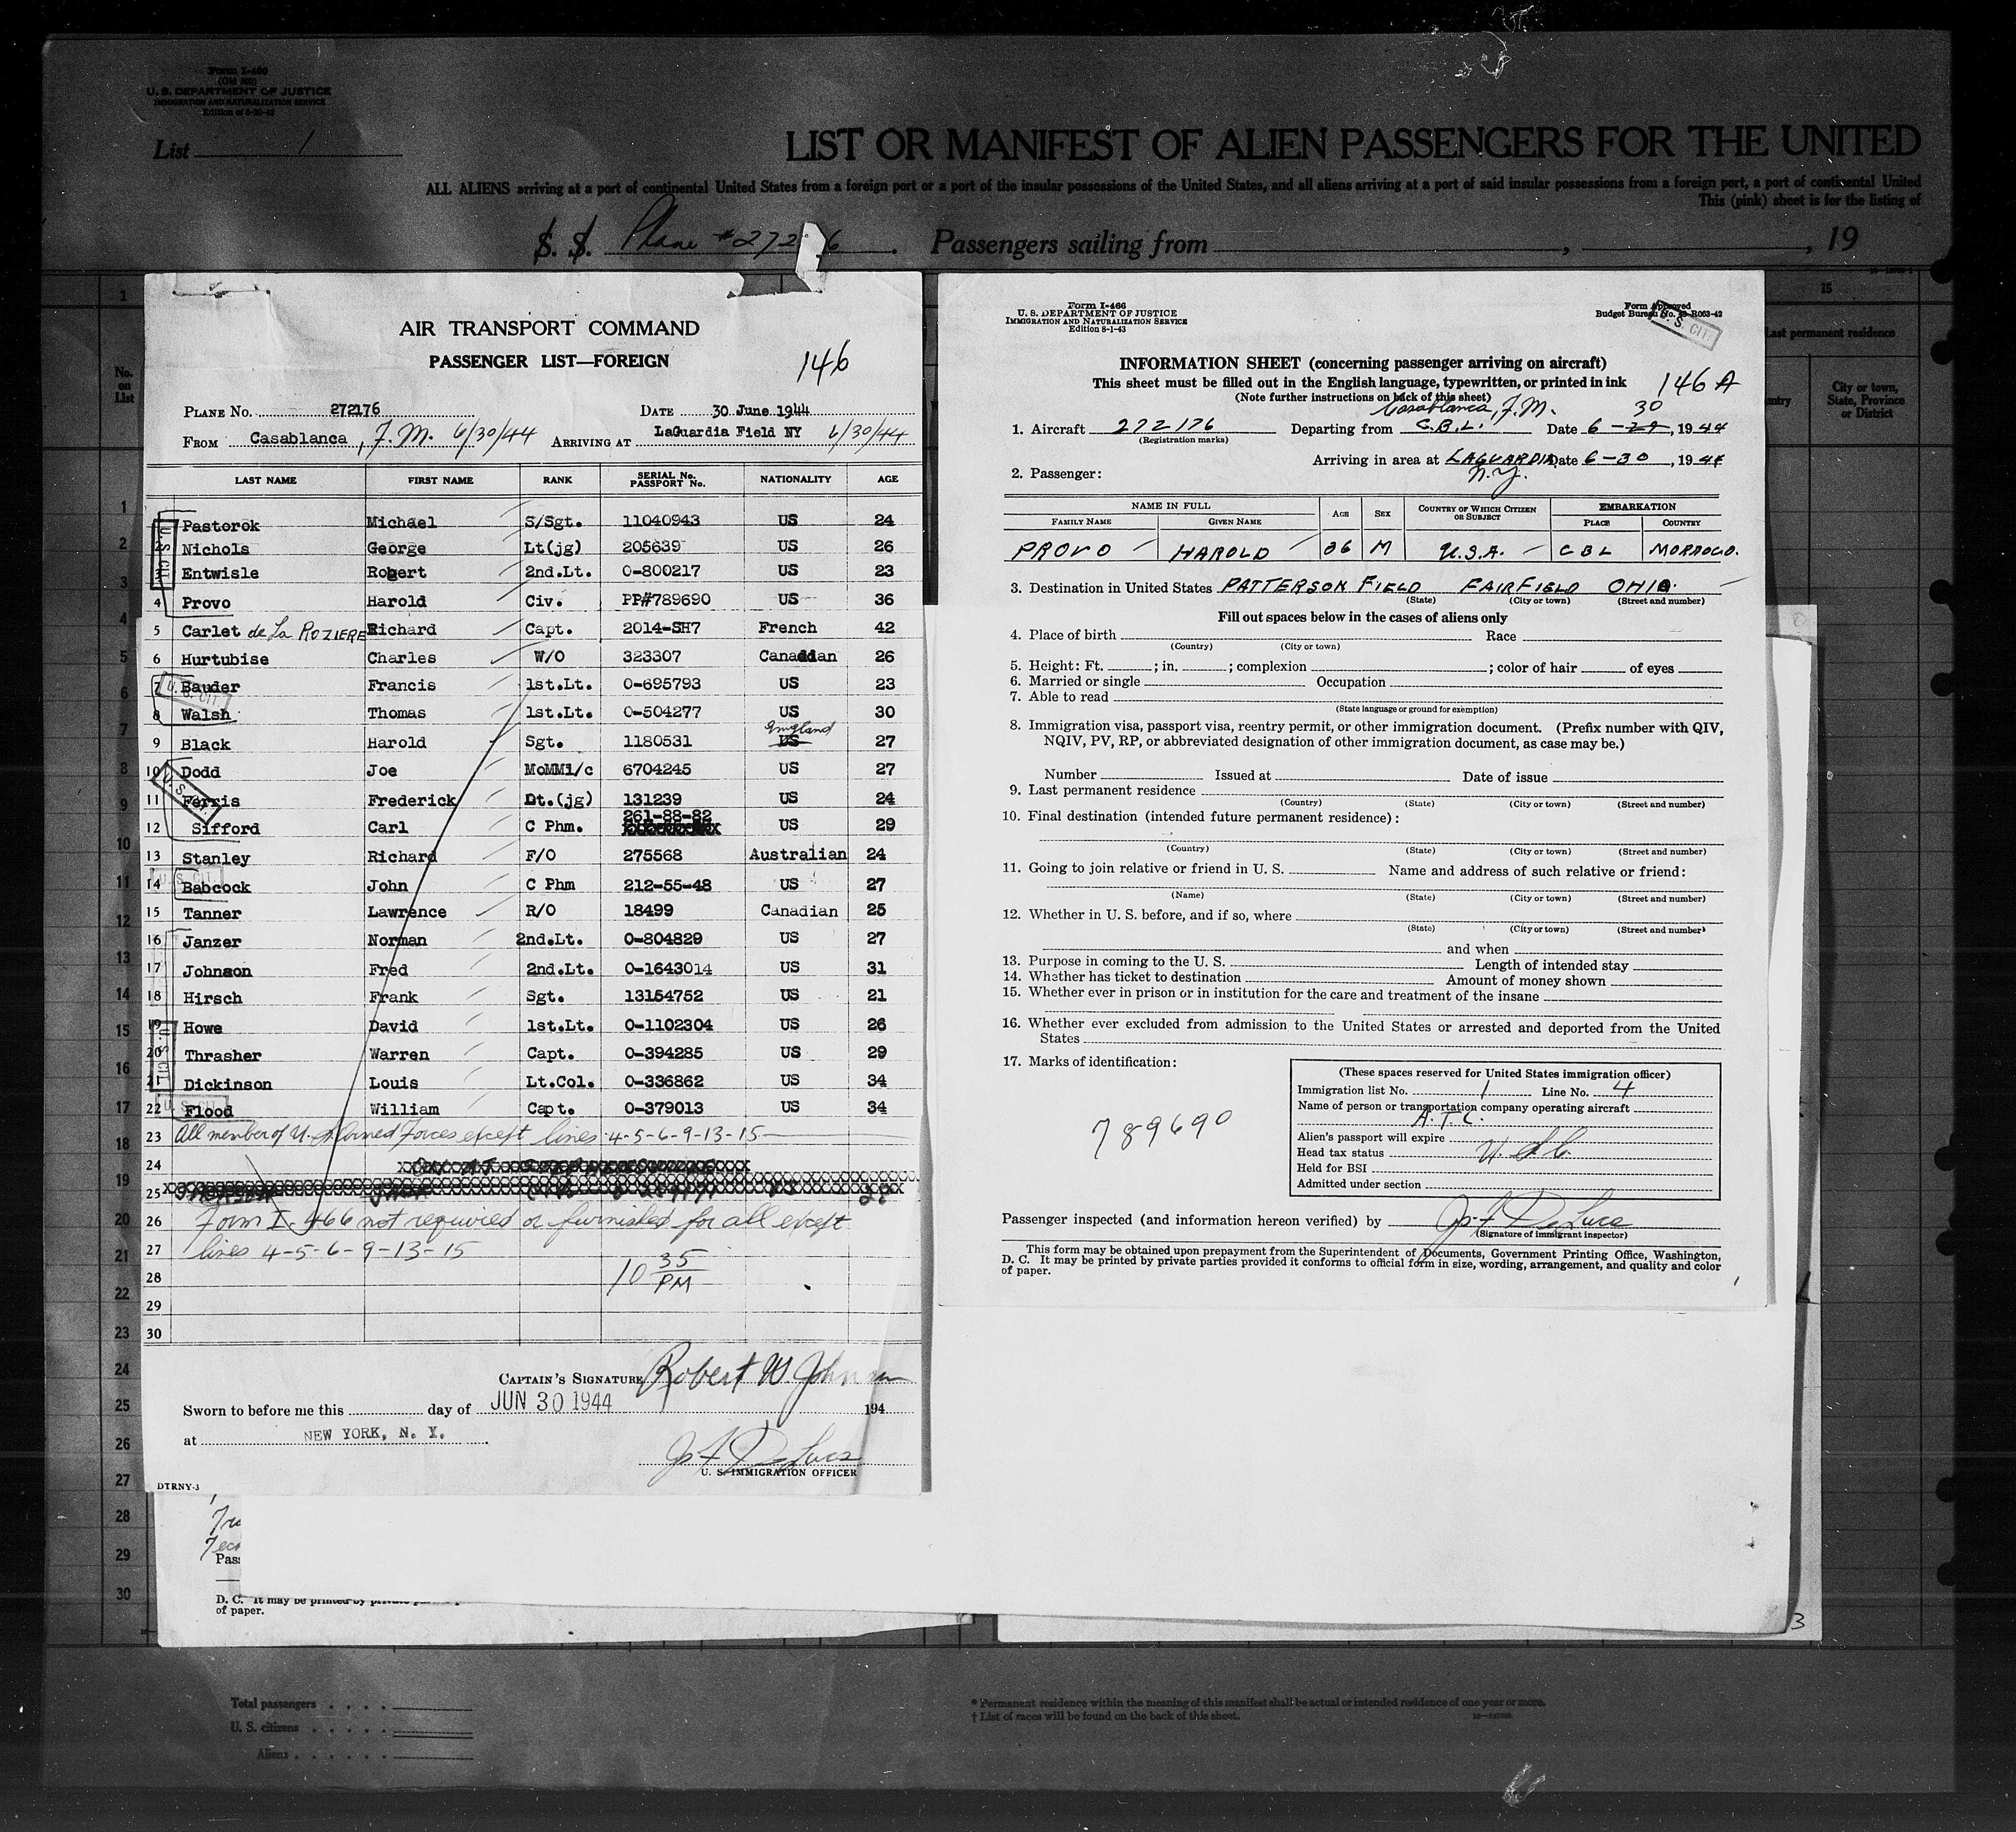 Form I-400
(Old 500)
U. S. DEPARTMENT OF JUSTICE
IMMIGRATION AND NATURALIZATION SERVICE
List 1
LIST OR MANIFEST OF ALIEN PASSENGERS FOR THE UNITED
ALL ALIENS arriving at a port of continental United States from a foreign port or a port of the insular possessions of the United States, and all aliens arriving at a port of said insular possessions from a foreign port, a port of continental United
This (pink) sheet is for the listing of
S. S. Plane #272 6 . Passengers sailing from , , 19
AIR TRANSPORT COMMAND
PASSENGER LIST—FOREIGN
146
PLANE NO. 272176 DATE 30 June 1944
FROM Casablanca, F. M. 6/30/44 ARRIVING AT LaGuardia Field NY 6/30/44
LAST NAME FIRST NAME RANK SERIAL NO. PASSPORT NO. NATIONALITY AGE
1 Pastorok Michael S/Sgt. 11040943 US 24
2 Nichols George Lt(jg) 205639 US 26
3 Entwisle Robert 2nd.Lt. 0-800217 US 23
4 Provo Harold Civ. PP#789690 US 36
5 Carlet de La ROZIERE Richard Capt. 2014-SH7 French 42
6 Hurtubise Charles W/O 323307 Canadian 26
7 Bauder Francis 1st.Lt. 0-695793 US 23
8 Walsh Thomas 1st.Lt. 0-504277 US 30
9 Black Harold Sgt. 1180531 US England 27
10 Dodd Joe MoMM1/c 6704245 US 27
11 Ferris Frederick Lt.(jg) 131239 US 24
12 Sifford Carl C Phm. 261-88-82 US 29
13 Stanley Richard F/O 275568 Australian 24
14 Babcock John C Phm 212-55-48 US 27
15 Tanner Lawrence R/O 18499 Canadian 25
16 Janzer Norman 2nd.Lt. 0-804829 US 27
17 Johnson Fred 2nd.Lt. 0-1643014 US 31
18 Hirsch Frank Sgt. 13154752 US 21
19 Howe David 1st.Lt. 0-1102304 US 26
20 Thrasher Warren Capt. 0-394285 US 29
21 Dickinson Louis Lt.Col. 0-336862 US 34
22 Flood William Capt. 0-379013 US 34
23 All member of U. S. Armed Forces except lines 4-5-6-9-13-15
24
25
26 Form I-466 not required or furnished for all except
27 lines 4-5-6-9-13-15
28 10 35 PM
29
30
CAPTAIN'S SIGNATURE Robert W. Johnson
Sworn to before me this day of JUN 30 1944 194
at NEW YORK, N. Y.
Jos F DeLuca
U. S. IMMIGRATION OFFICER
DTRNY-3
Form I-466
U. S. DEPARTMENT OF JUSTICE
IMMIGRATION AND NATURALIZATION SERVICE
Edition 8-1-43
Form Approved
Budget Bureau No. 43-R063-42
U. S. CIT.
INFORMATION SHEET (concerning passenger arriving on aircraft)
This sheet must be filled out in the English language, typewritten, or printed in ink
(Note further instructions on back of this sheet)
146 A
Casablanca, F. M. 30
1. Aircraft 272176 Departing from C.B.L. Date 6-29, 1944
(Registration marks)
Arriving in area at LAGUARDIA N.Y. Date 6-30, 1944
2. Passenger:
NAME IN FULL AGE SEX COUNTRY OF WHICH CITIZEN OR SUBJECT EMBARKATION
FAMILY NAME GIVEN NAME PLACE COUNTRY
PROVO HAROLD 36 M U.S.A. CBL MOROCCO.
3. Destination in United States PATTERSON FIELD FAIRFIELD OHIO.
(State) (City or town) (Street and number)
Fill out spaces below in the cases of aliens only
4. Place of birth Race
(Country) (City or town)
5. Height: Ft. ; in. ; complexion ; color of hair of eyes
6. Married or single Occupation
7. Able to read
(State language or ground for exemption)
8. Immigration visa, passport visa, reentry permit, or other immigration document. (Prefix number with QIV,
NQIV, PV, RP, or abbreviated designation of other immigration document, as case may be.)
Number Issued at Date of issue
9. Last permanent residence
(Country) (State) (City or town) (Street and number)
10. Final destination (intended future permanent residence):
(Country) (State) (City or town) (Street and number)
11. Going to join relative or friend in U. S. Name and address of such relative or friend:
(Name) (State) (City or town) (Street and number)
12. Whether in U. S. before, and if so, where
(State) (City or town) (Street and number)
and when
13. Purpose in coming to the U. S. Length of intended stay
14. Whether has ticket to destination Amount of money shown
15. Whether ever in prison or in institution for the care and treatment of the insane
16. Whether ever excluded from admission to the United States or arrested and deported from the United
States
17. Marks of identification:
789690
(These spaces reserved for United States immigration officer)
Immigration list No. 1 Line No. 4
Name of person or transportation company operating aircraft
A.T.C.
Alien's passport will expire
Head tax status U S C.
Held for BSI
Admitted under section
Passenger inspected (and information hereon verified) by Jos F DeLuca
(Signature of immigrant inspector)
This form may be obtained upon prepayment from the Superintendent of Documents, Government Printing Office, Washington,
D. C. It may be printed by private parties provided it conforms to official form in size, wording, arrangement, and quality and color
of paper.
15
Last permanent residence
City or town, State, Province or District
No. on List
Pass
D. C. It may be printed by private
of paper.
3
Total passengers
U. S. citizens
Aliens
* Permanent residence within the meaning of this manifest shall be actual or intended residence of one year or more.
† List of races will be found on the back of this sheet.